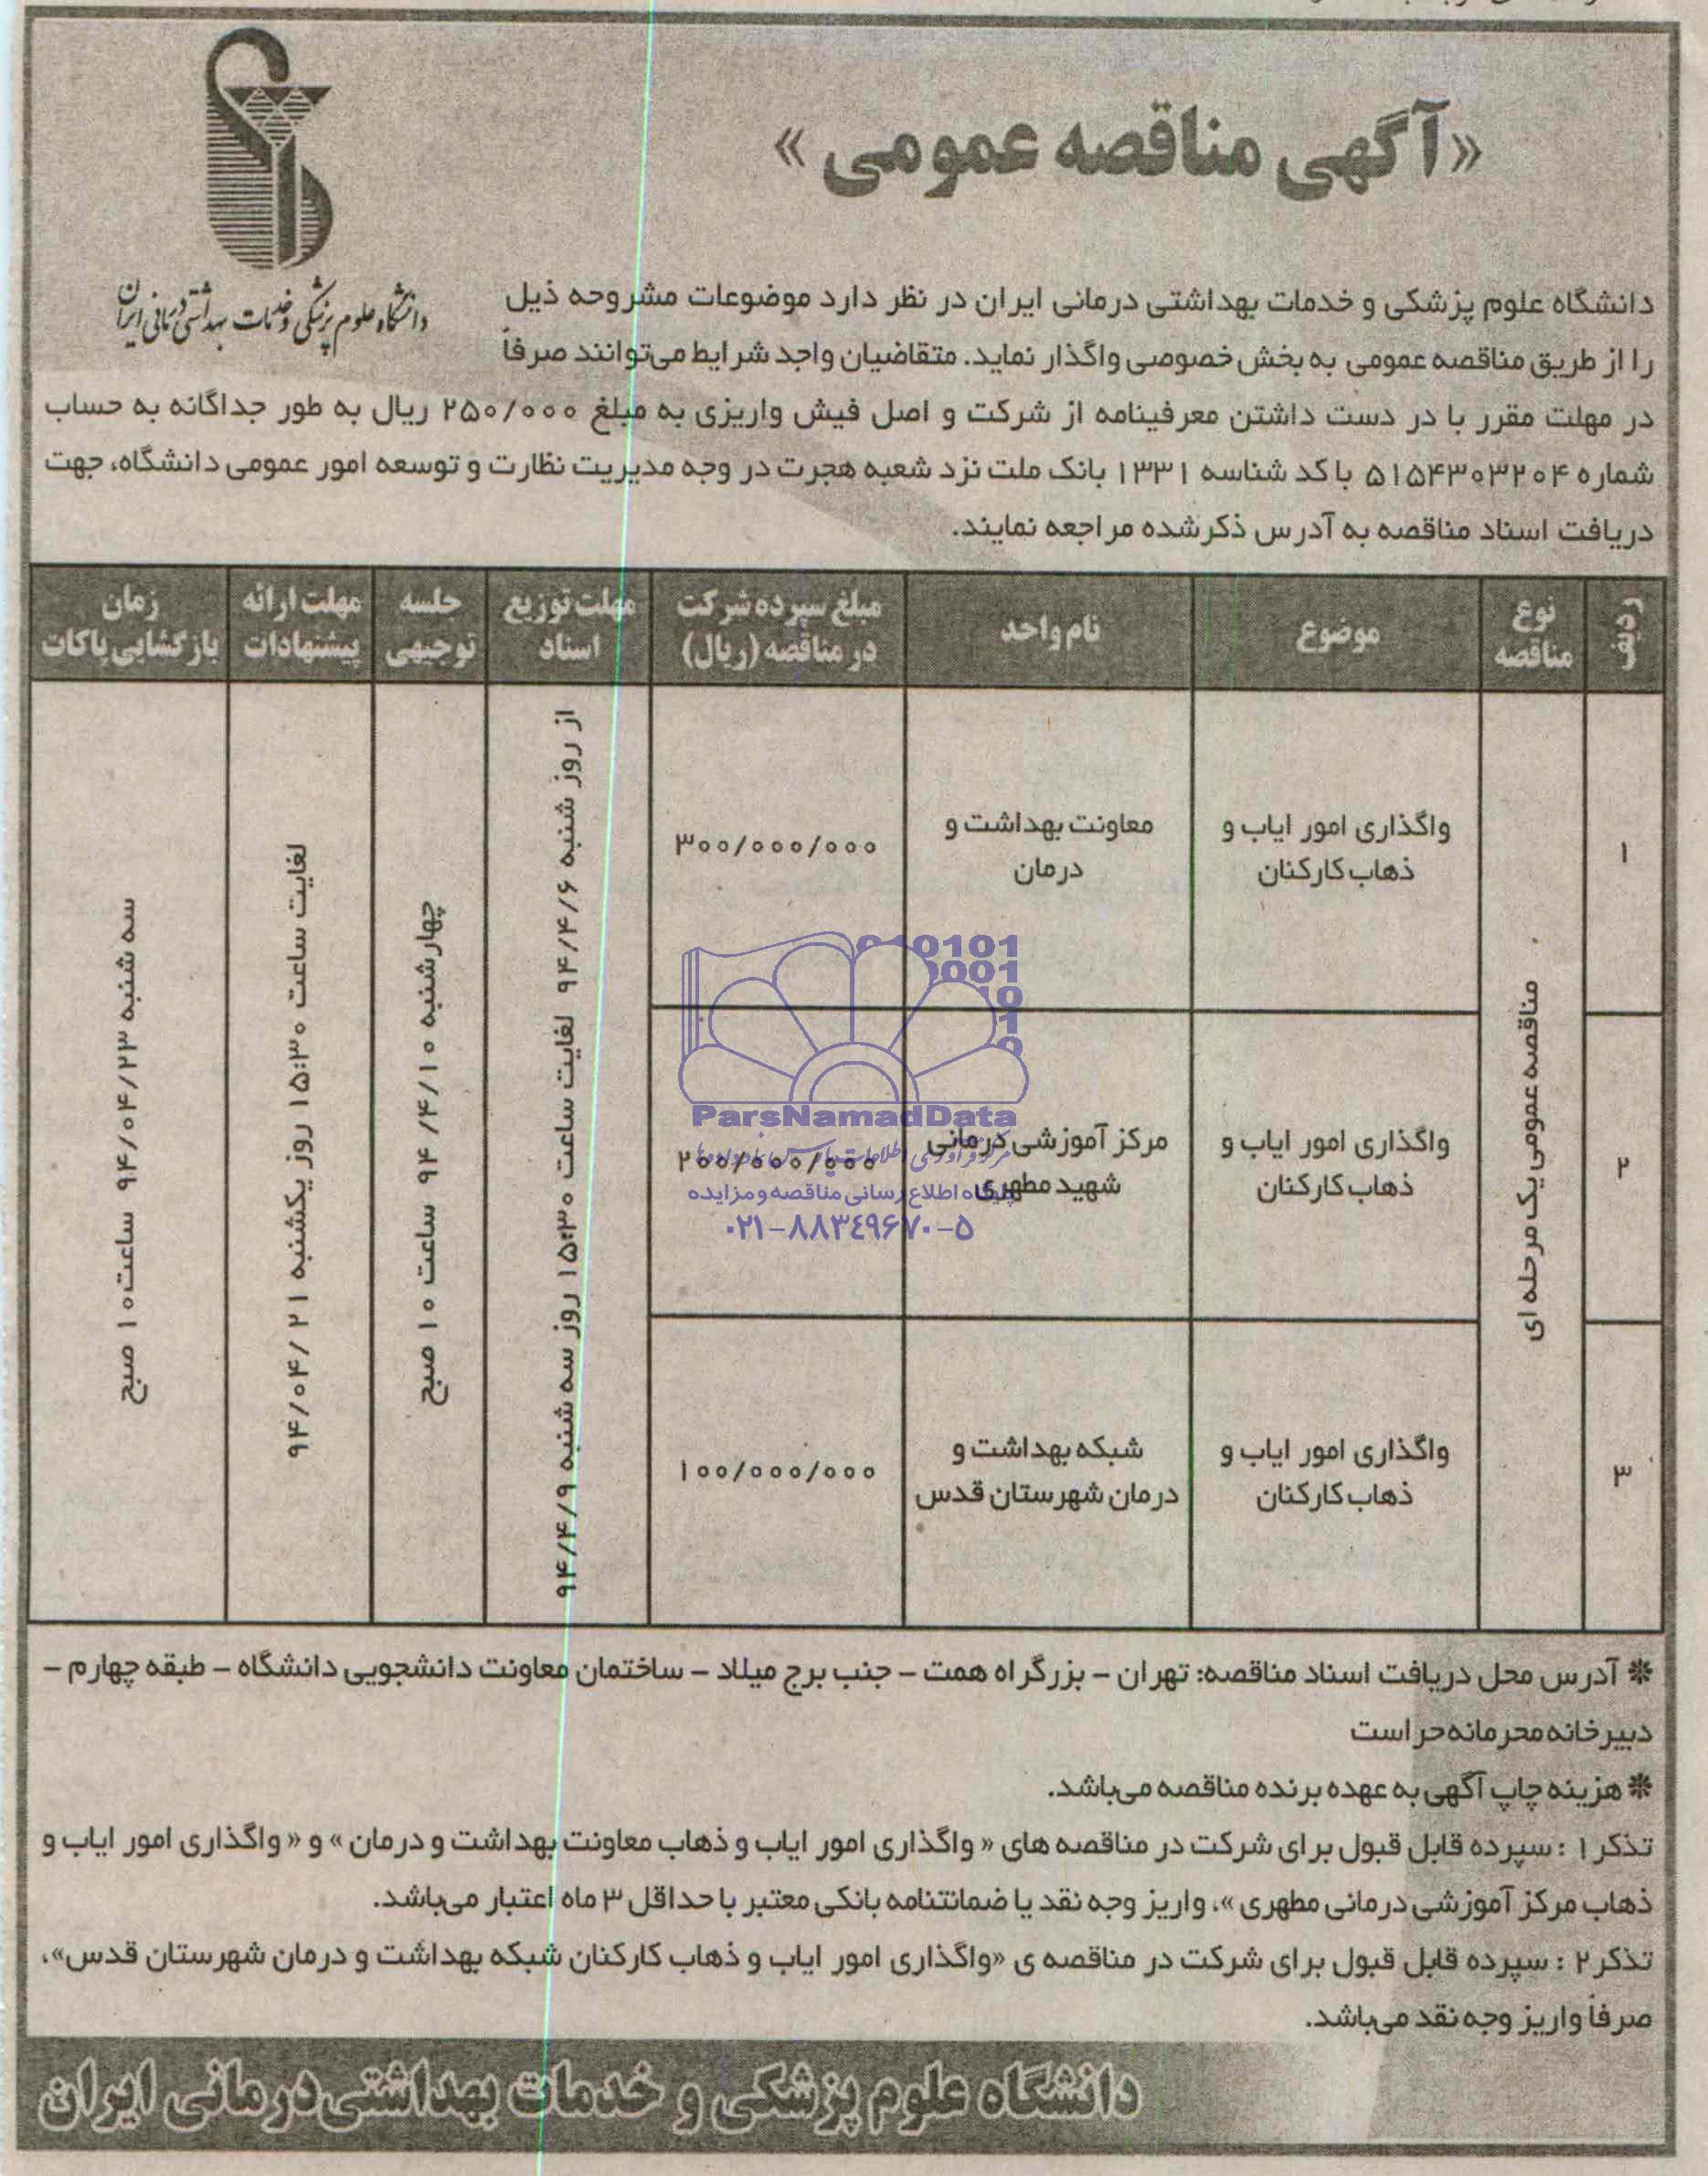 «آگهی مناقصه عمومی»
دانشگاه علوم پزشکی و خدمات بهداشتی درمانی ایران
دانشگاه علوم پزشکی و خدمات بهداشتی درمانی ایران در نظر دارد موضوعات مشروحه ذیل
را از طریق مناقصه عمومی به بخش خصوصی واگذار نماید. متقاضیان واجد شرایط می‌توانند صرفاً
در مهلت مقرر با در دست داشتن معرفینامه از شرکت و اصل فیش واریزی به مبلغ ۲۵۰/۰۰۰ ریال به طور جداگانه به حساب
شماره ۵۱۵۴۳۰۳۲۰۴ با کد شناسه ۱۳۳۱ بانک ملت نزد شعبه هجرت در وجه مدیریت نظارت و توسعه امور عمومی دانشگاه، جهت
دریافت اسناد مناقصه به آدرس ذکر شده مراجعه نمایند.
ردیف
نوع
مناقصه
موضوع
نام واحد
مبلغ سپرده شرکت
در مناقصه (ریال)
مهلت توزیع
اسناد
جلسه
توجیهی
مهلت ارائه
پیشنهادات
زمان
بازگشایی پاکات
۱
مناقصه عمومی یک مرحله ای
واگذاری امور ایاب و
ذهاب کارکنان
معاونت بهداشت و
درمان
۳۰۰/۰۰۰/۰۰۰
از روز شنبه ۹۴/۴/۶ لغایت ساعت ۱۵:۳۰ روز سه شنبه ۹۴/۴/۹
چهارشنبه ۹۴/۴/۱۰ ساعت ۱۰ صبح
لغایت ساعت ۱۵:۳۰ روز یکشنبه ۹۴/۰۴/۲۱
سه شنبه ۹۴/۰۴/۲۳ ساعت ۱۰ صبح
۲
واگذاری امور ایاب و
ذهاب کارکنان
مرکز آموزشی درمانی
شهید مطهری
۲۰۰/۰۰۰/۰۰۰
۳
واگذاری امور ایاب و
ذهاب کارکنان
شبکه بهداشت و
درمان شهرستان قدس
۱۰۰/۰۰۰/۰۰۰
ParsNamadData
پایگاه اطلاع رسانی مناقصه و مزایده
۰۲۱-۸۸۳۴۹۶۷۰-۵
* آدرس محل دریافت اسناد مناقصه: تهران – بزرگراه همت – جنب برج میلاد – ساختمان معاونت دانشجویی دانشگاه – طبقه چهارم –
دبیرخانه محرمانه حراست
* هزینه چاپ آگهی به عهده برنده مناقصه می‌باشد.
تذکر ۱ : سپرده قابل قبول برای شرکت در مناقصه های « واگذاری امور ایاب و ذهاب معاونت بهداشت و درمان » و « واگذاری امور ایاب و
ذهاب مرکز آموزشی درمانی مطهری »، واریز وجه نقد یا ضمانتنامه بانکی معتبر با حداقل ۳ ماه اعتبار می‌باشد.
تذکر ۲ : سپرده قابل قبول برای شرکت در مناقصه ی «واگذاری امور ایاب و ذهاب کارکنان شبکه بهداشت و درمان شهرستان قدس»،
صرفاً واریز وجه نقد می‌باشد.
دانشگاه علوم پزشکی و خدمات بهداشتی درمانی ایران